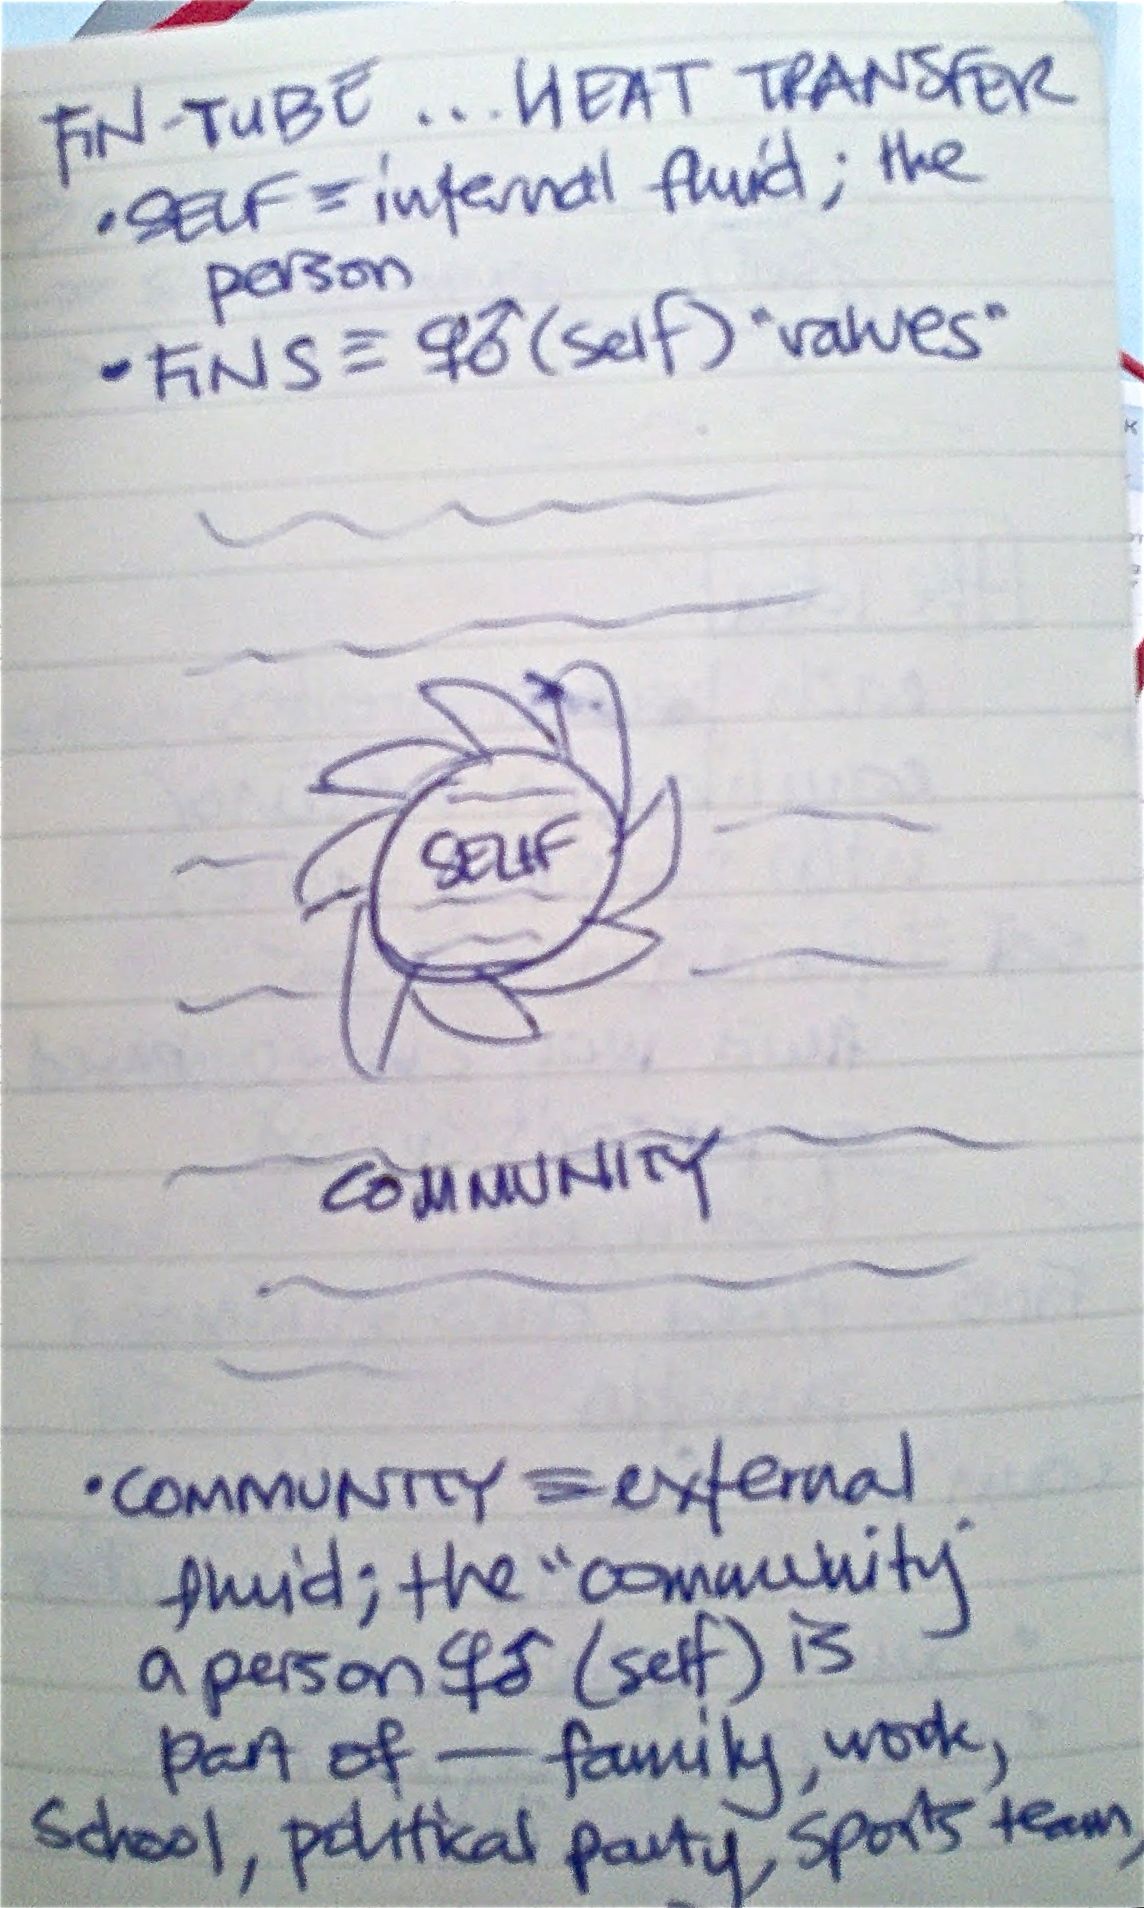 FIN-TUBE ... HEAT TRANSFER
• SELF ≡ internal fluid; the
person
• FINS ≡ ♀♂ (self) "values"
SELF
COMMUNITY
• COMMUNITY ≡ external
fluid; the "community"
a person ♀♂ (self) is
part of — family, work,
School, political party, sports team,